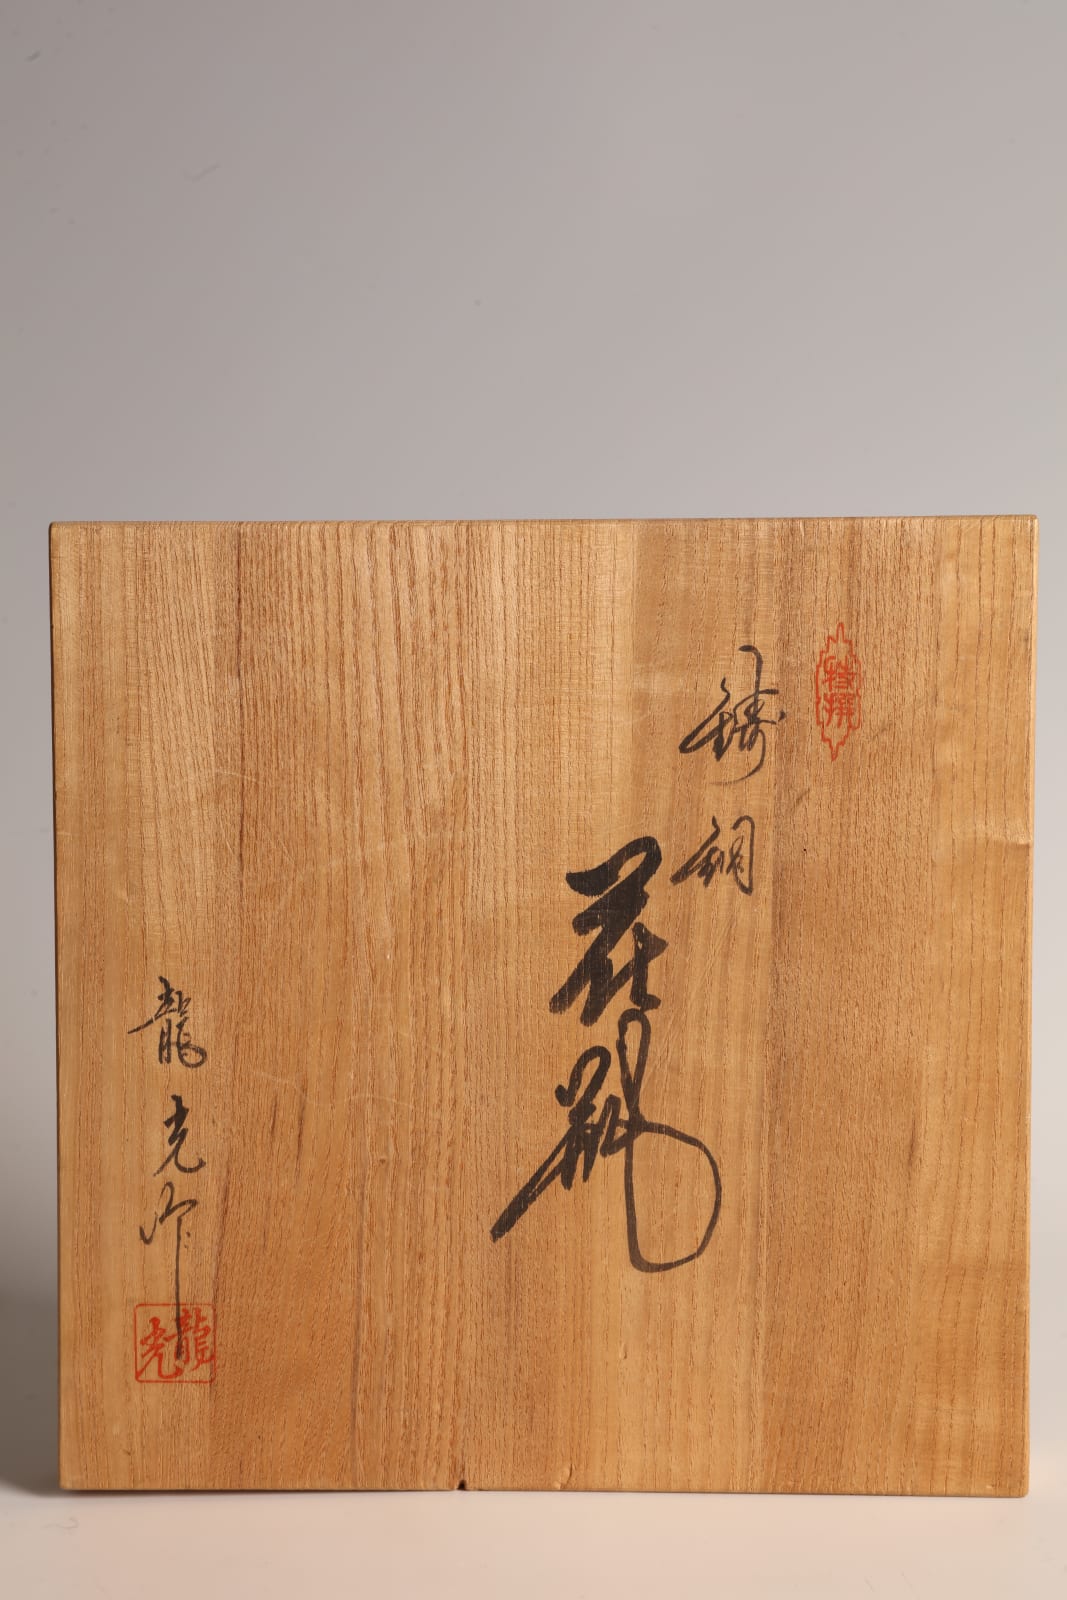 特撰
鋳銅
花瓶
龍光作
龍光